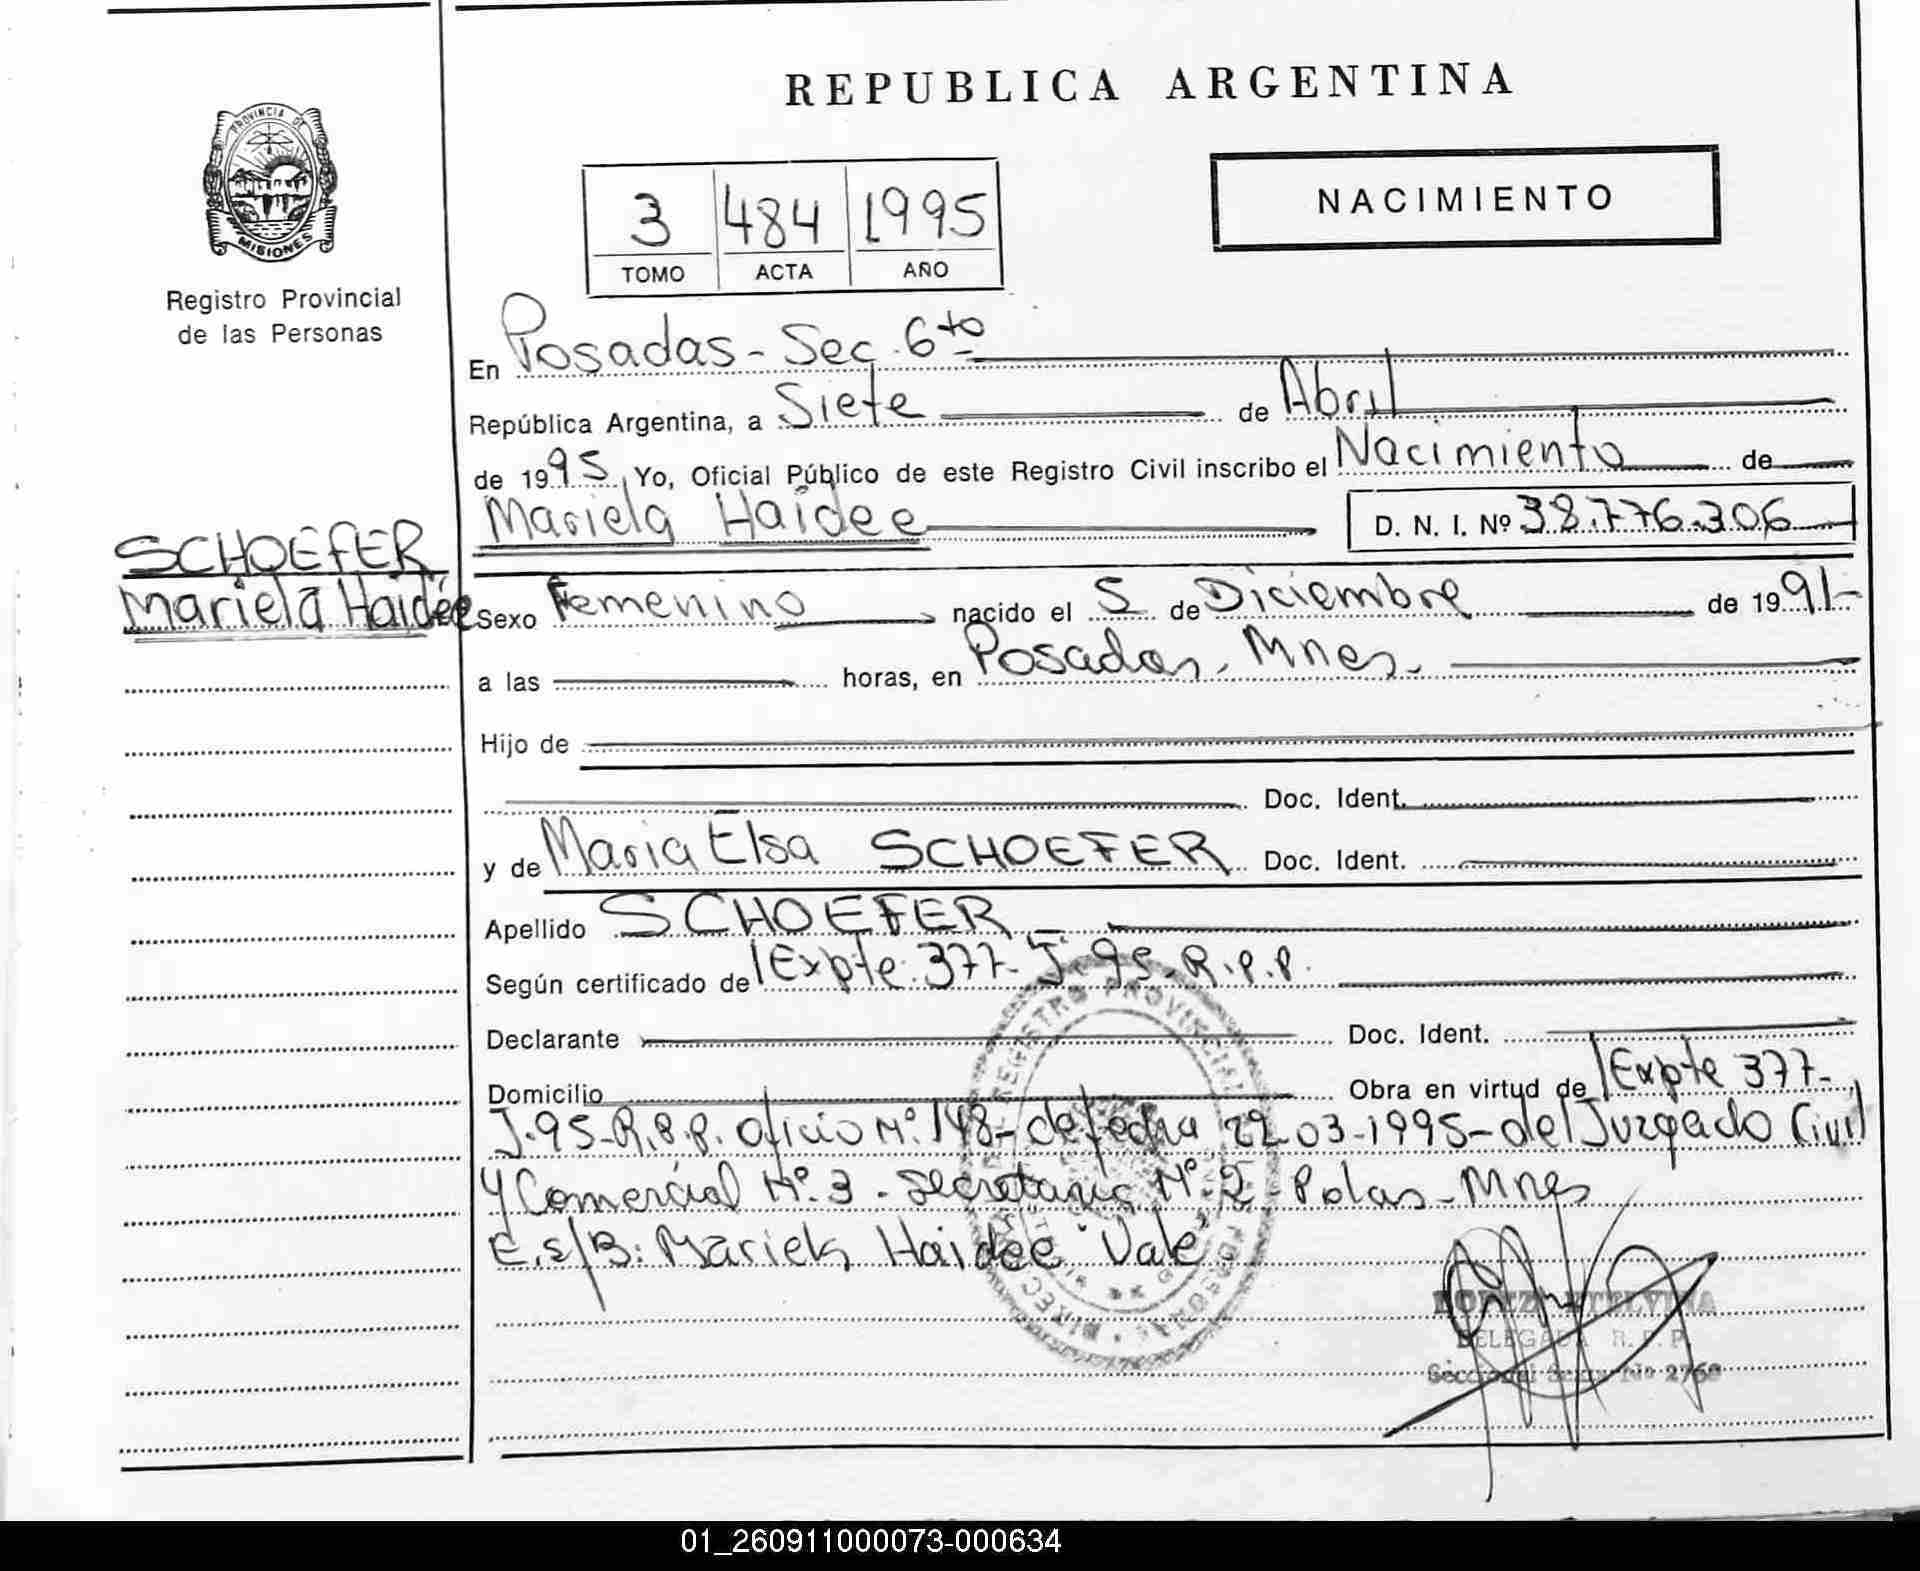 REPUBLICA ARGENTINA
PROVINCIA DE
MISIONES
Registro Provincial
de las Personas
NACIMIENTO
3 484 1995
TOMO ACTA AÑO
En Posadas - Sec. 6to
República Argentina, a Siete de Abril
de 1995, Yo, Oficial Público de este Registro Civil inscribo el Nacimiento de
Mariela Haidee D. N. I. Nº 38.776.306
SCHOEFER
Mariela Haidée
Sexo Femenino nacido el 5 de Diciembre de 1991-
a las horas, en Posadas, Mnes.
Hijo de
Doc. Ident.
y de Maria Elsa SCHOEFER Doc. Ident.
Apellido SCHOEFER
Según certificado de Expte. 377- J- 95. R.P.P.
Declarante Doc. Ident.
Domicilio Obra en virtud de Expte 377-
J-95-R.P.P. Oficio Nº 148- de fecha 22-03-1995- del Juzgado Civil
y Comercial Nº.3 - Secretaria Nº 2 - Pdas - Mnes
E.s/B: Mariela Haidee "Vale"
REGISTRO PROVINCIAL
DELEGADA R.P.P.
Seccional Sexta Nº 2768
01_260911000073-000634